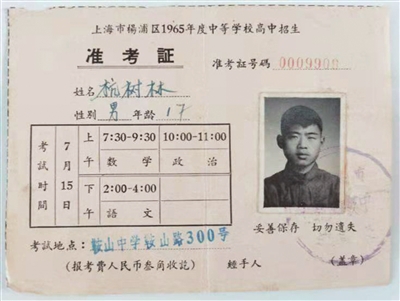 上海市楊浦区1965年度中等学校高中招生
准考証
准考証号码 0009908
姓名 杭树林
性别 男 年龄 17
考試时間
7月15日
上午 7:30-9:30 数学 10:00-11:00 政治
下午 2:00-4:00 語文
妥善保存 切勿遺失
考試地点：鞍山中学鞍山路300号
(报考費人民币叁角收訖) 經手人 (盖章)